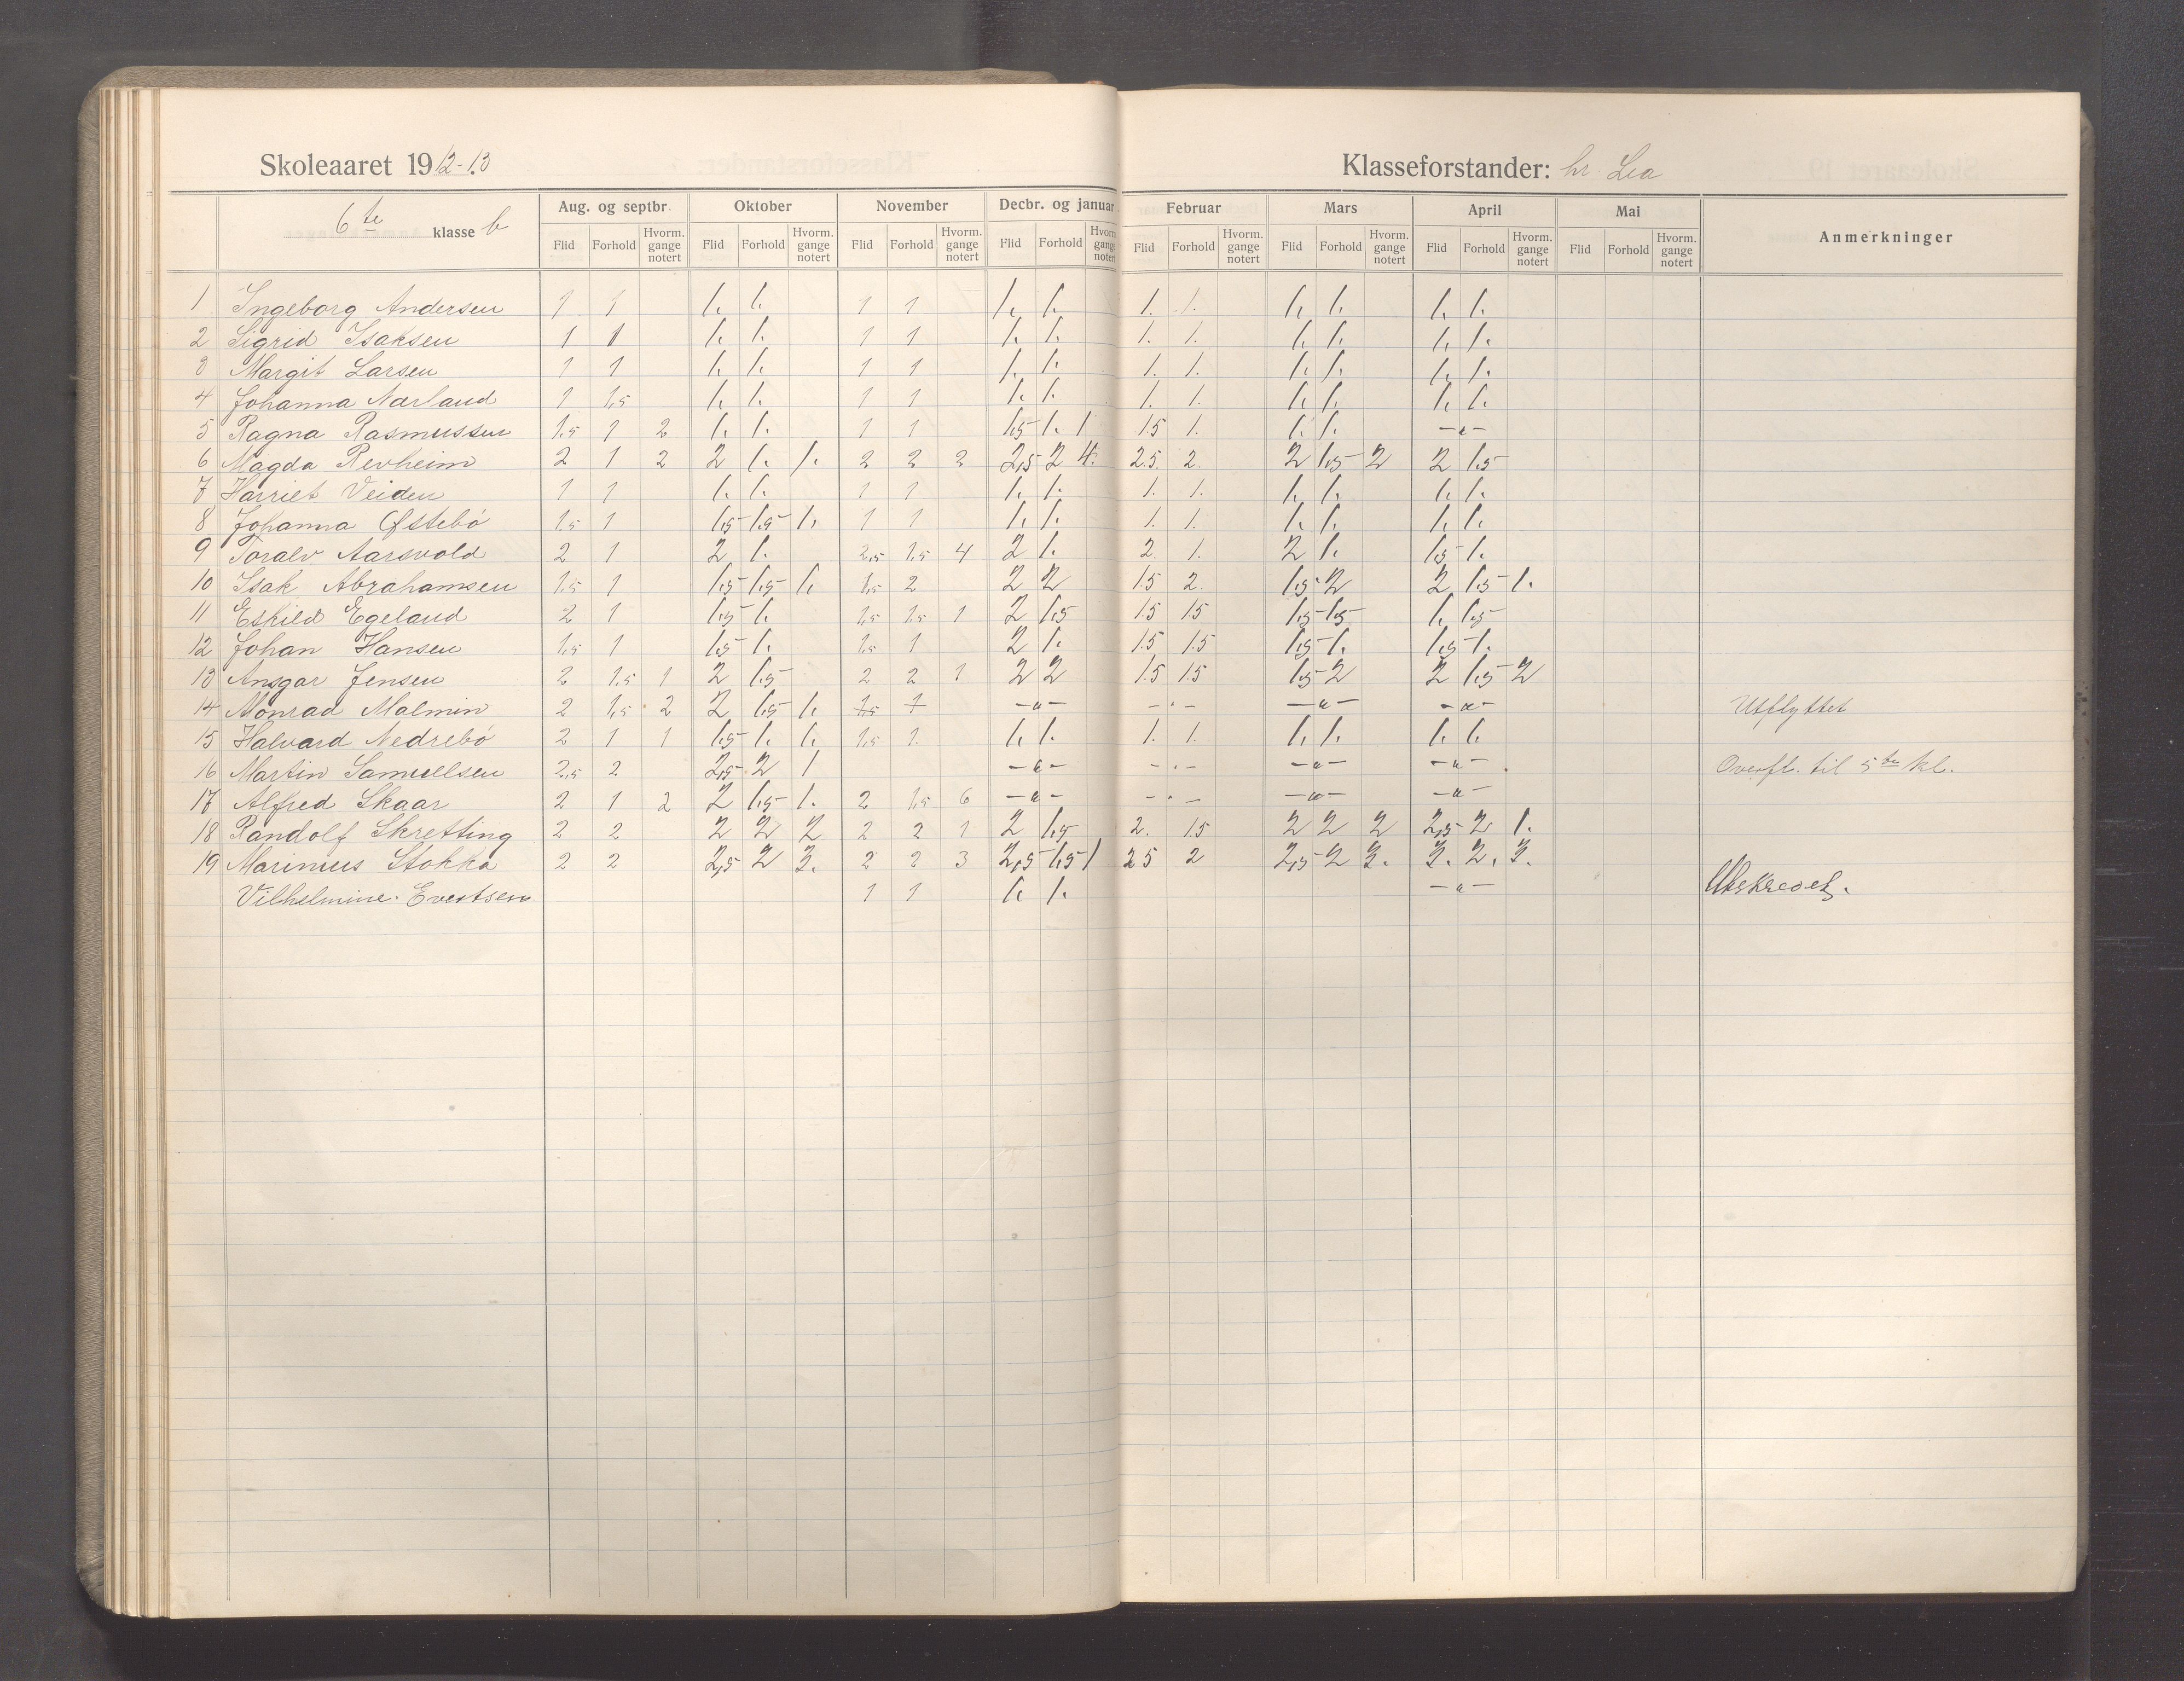 Skoleaaret 1912-13
Klasseforstander: hr. Lea
6te klasse b
Aug. og septbr. Oktober November Decbr. og januar Februar Mars April Mai Anmerkninger
Flid Forhold Hvorm. gange notert Flid Forhold Hvorm. gange notert Flid Forhold Hvorm. gange notert Flid Forhold Hvorm. gange notert Flid Forhold Hvorm. gange notert Flid Forhold Hvorm. gange notert Flid Forhold Hvorm. gange notert Flid Forhold Hvorm. gange notert
1 Ingeborg Andersen 1 1 1. 1. 1 1 1. 1. 1. 1. 1. 1. 1. 1.
2 Sigrid Isaksen 1 1 1. 1. 1 1 1. 1. 1. 1. 1. 1. 1. 1.
3 Margit Larsen 1 1 1. 1. 1 1 1. 1. 1. 1. 1. 1. 1. 1.
4 Johanna Nærland 1 1,5 1. 1. 1 1 1. 1. 1. 1. 1. 1. 1. 1.
5 Ragna Rasmussen 1,5 1 2 1. 1. 1 1 1,5 1. 1 1.5 1. 1. 1. -"-
6 Magda Revheim 2 1 2 2 1. 1. 2 2 2 2,5 2 4. 2.5. 2. 2 1,5 2 2 1,5
7 Harriet Veiden 1 1 1. 1. 1 1 1. 1. 1. 1. 1. 1. 1. 1.
8 Johanna Østebö 1.5 1 1,5 1,5 1. 1 1 1. 1. 1. 1. 1. 1. 1. 1.
9 Toralv Aarsvold 2 1 2 1. 2,5 1,5 4 2 1. 2. 1. 2 1. 1,5 1.
10 Isak Abrahamsen 1.5 1 1,5 1,5 1. 1,5 2 2 2 1.5 2. 1,5 2 2 1,5 1.
11 Eskild Egeland 2 1 1,5 1. 1,5 1,5 1 2 1,5 1.5 1.5 1,5 1,5 1. 1,5
12 Johan Hansen 1,5 1 1,5 1. 1,5 1 2 1. 1.5 1.5 1,5 1. 1,5 1.
13 Ansgar Jensen 2 1.5 1 2 1,5 2 2 1 2 2 1.5 1.5 1,5 2 2 1,5 2
14 Monrad Malmin 2 1,5 2 2 1,5 1. 1,5 1 -"- -"- -"- -"- Utflyttet
15 Halvard Nedrebö 2 1 1 1,5 1. 1. 1,5 1. 1. 1. 1. 1. 1. 1. 1. 1.
16 Martin Samuelsen 2,5 2 2,5 2 1 -"- -"- -"- -"- Overfl. til 5te kl.
17 Alfred Skaar 2 1 2 2 1,5 1. 2 1,5 6 -"- -"- -"- -"-
18 Randolf Skretting 2 2 2 2 2 2 2 1 2 1,5 2. 1.5 2 2 2 2,5 2 1.
19 Marinius Stokka 2 2 2,5 2 3. 2 2 3 2,5 1,5 1 2 5 2 2,5 2 3. 3. 2. 3.
Vilhelmine Evertsen 1 1 1. 1. -"- Utskrevet.